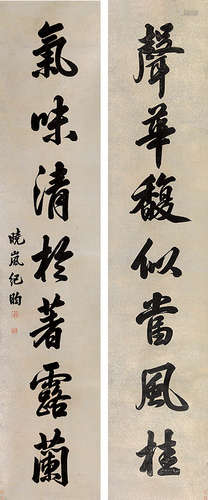 聲華馥似當風桂
氣味清於著露蘭
曉嵐紀昀